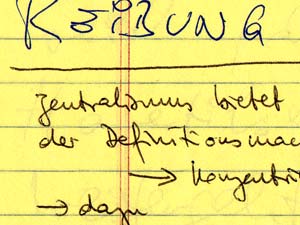 REIBUNG
Zentralismus bietet
der Definitionsmac
→ Konzentri
→ dazu